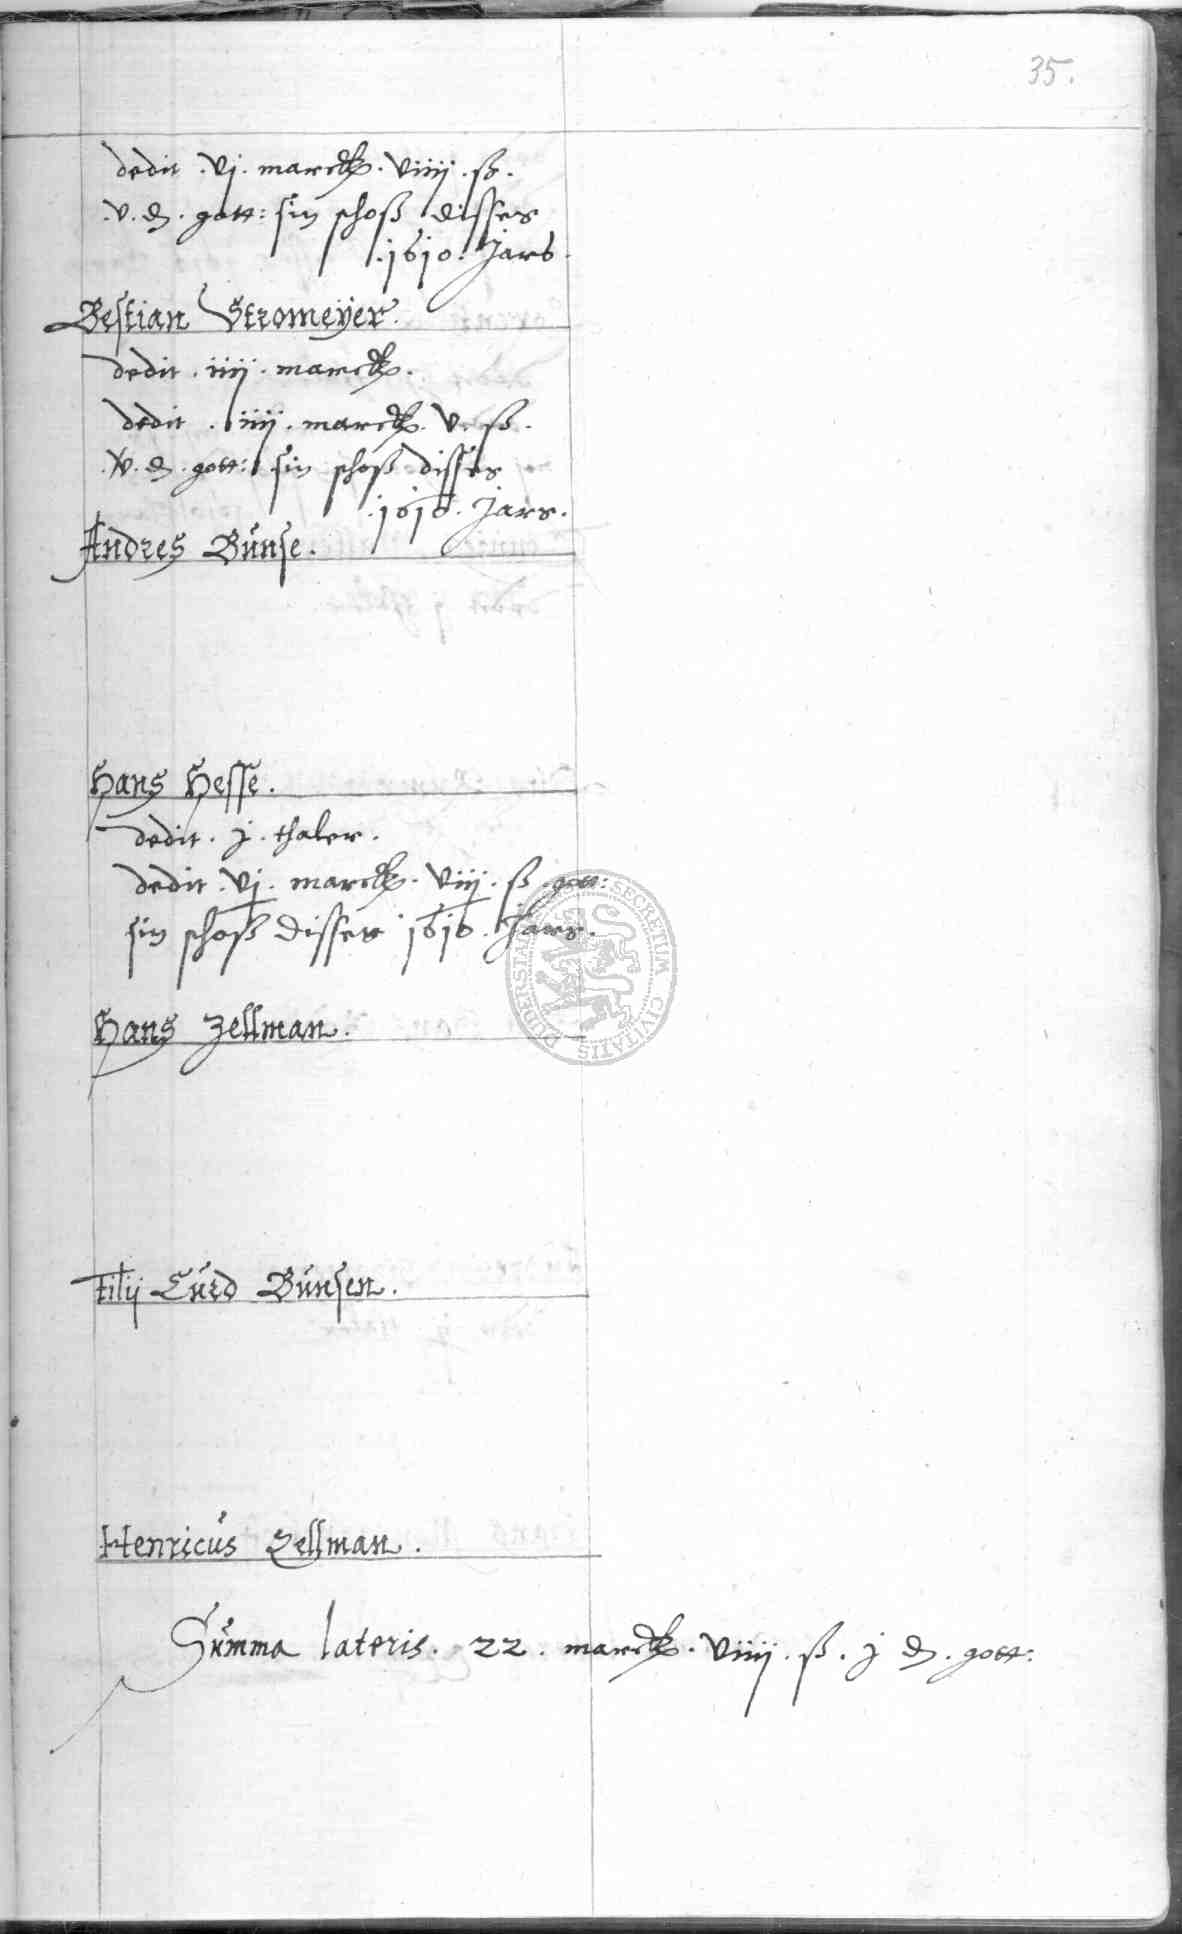 35.
dedit . vj . marck . viiij . ß .
. v . d . gott : sin schoß disses
. 1610 . Jars .
Bestian Stromeÿer .
dedit . iiij . marck .
dedit . iiij . marck . v . ß .
. v . d . gott : sin schoß disses
. 1610 . Jars .
Andres Bunse .
Hans Hesse .
dedit . j . thaler .
dedit . vj . marck . viiij . ß . gott :
sin schoß disses 1610 . Jars .
Hans Zellman .
filij Curd Bunsen .
Henricus Zellman .
Summa lateris . 22 . marck . viiij . ß . j d . gott :
SECRETUM CIVITATIS